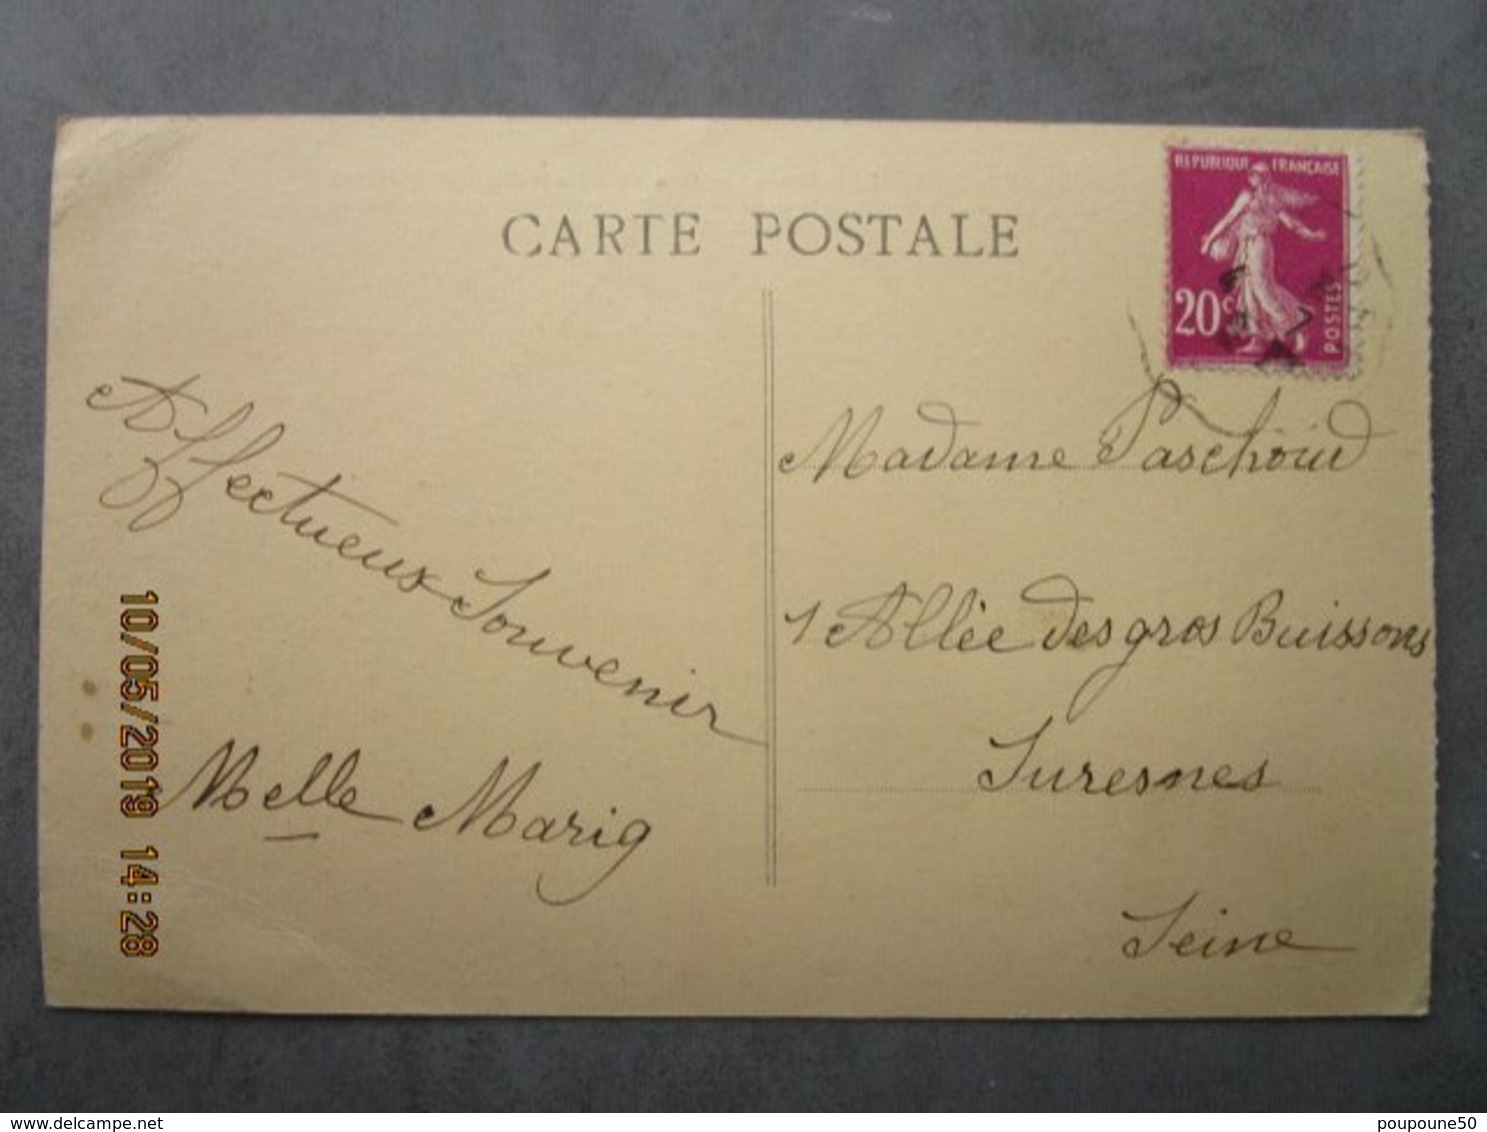 CARTE POSTALE
REPUBLIQUE FRANÇAISE
20c
POSTES
Affectueux Souvenir
Melle Marig
Madame Paschoud
1 Allée des gros Buissons
Suresnes
Seine
10/05/2019 14:28
delcampe.net
poupoune50